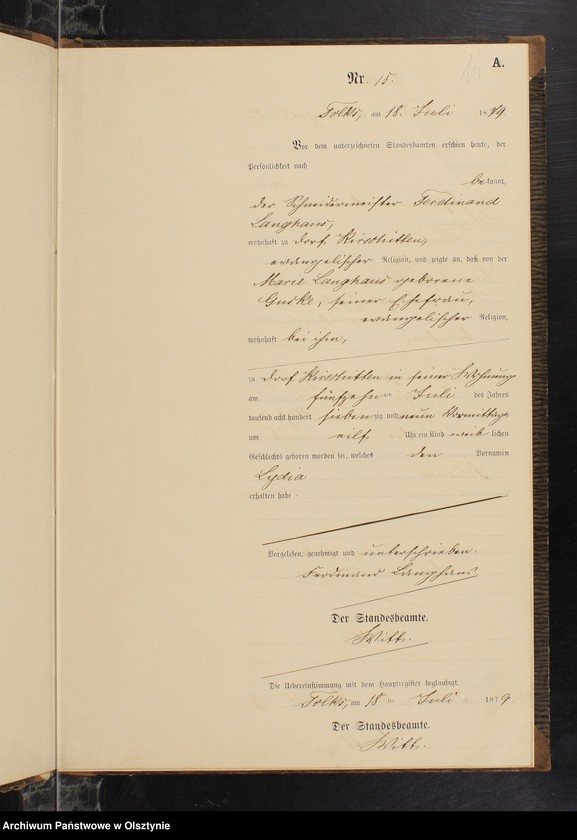 A.
Nr. 15.
Tolks, am 18. Juli 1879.
Vor dem unterzeichneten Standesbeamten erschien heute, der
Persönlichkeit nach
bekannt,
der Schneidermeister Ferdinand
Langhans,
wohnhaft zu Dorf Kirschitten,
evangelischer Religion, und zeigte an, daß von der
Marie Langhans geborene
Guske, seiner Ehefrau,
evangelischer Religion,
wohnhaft bei ihm,
zu Dorf Kirschitten in seiner Wohnung
am fünfzehnten Juli des Jahres
tausend acht hundert siebenzig und neun Vormittags
um eilf Uhr ein Kind weiblichen
Geschlechts geboren worden sei, welches den Vornamen
Lydia
erhalten habe.
Vorgelesen, genehmigt und unterschrieben.
Ferdinand Langhans
Der Standesbeamte.
Witt.
Die Uebereinstimmung mit dem Hauptregister beglaubigt.
Tolks, am 18 ten Juli 1879.
Der Standesbeamte.
Witt.
Archiwum Państwowe w Olsztynie